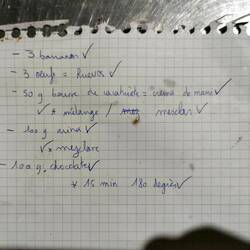 - 3 bananas ✓
- 3 oeuf = huevos ✓
- 50 g beurre de cacahuète = crema de mani ✓
✓ * mélange / mesclar ✓
- 100 g arina ✓
✓ * mezclare
- 100 g. chocolate ✓
* 15 min 180 degrés ✓